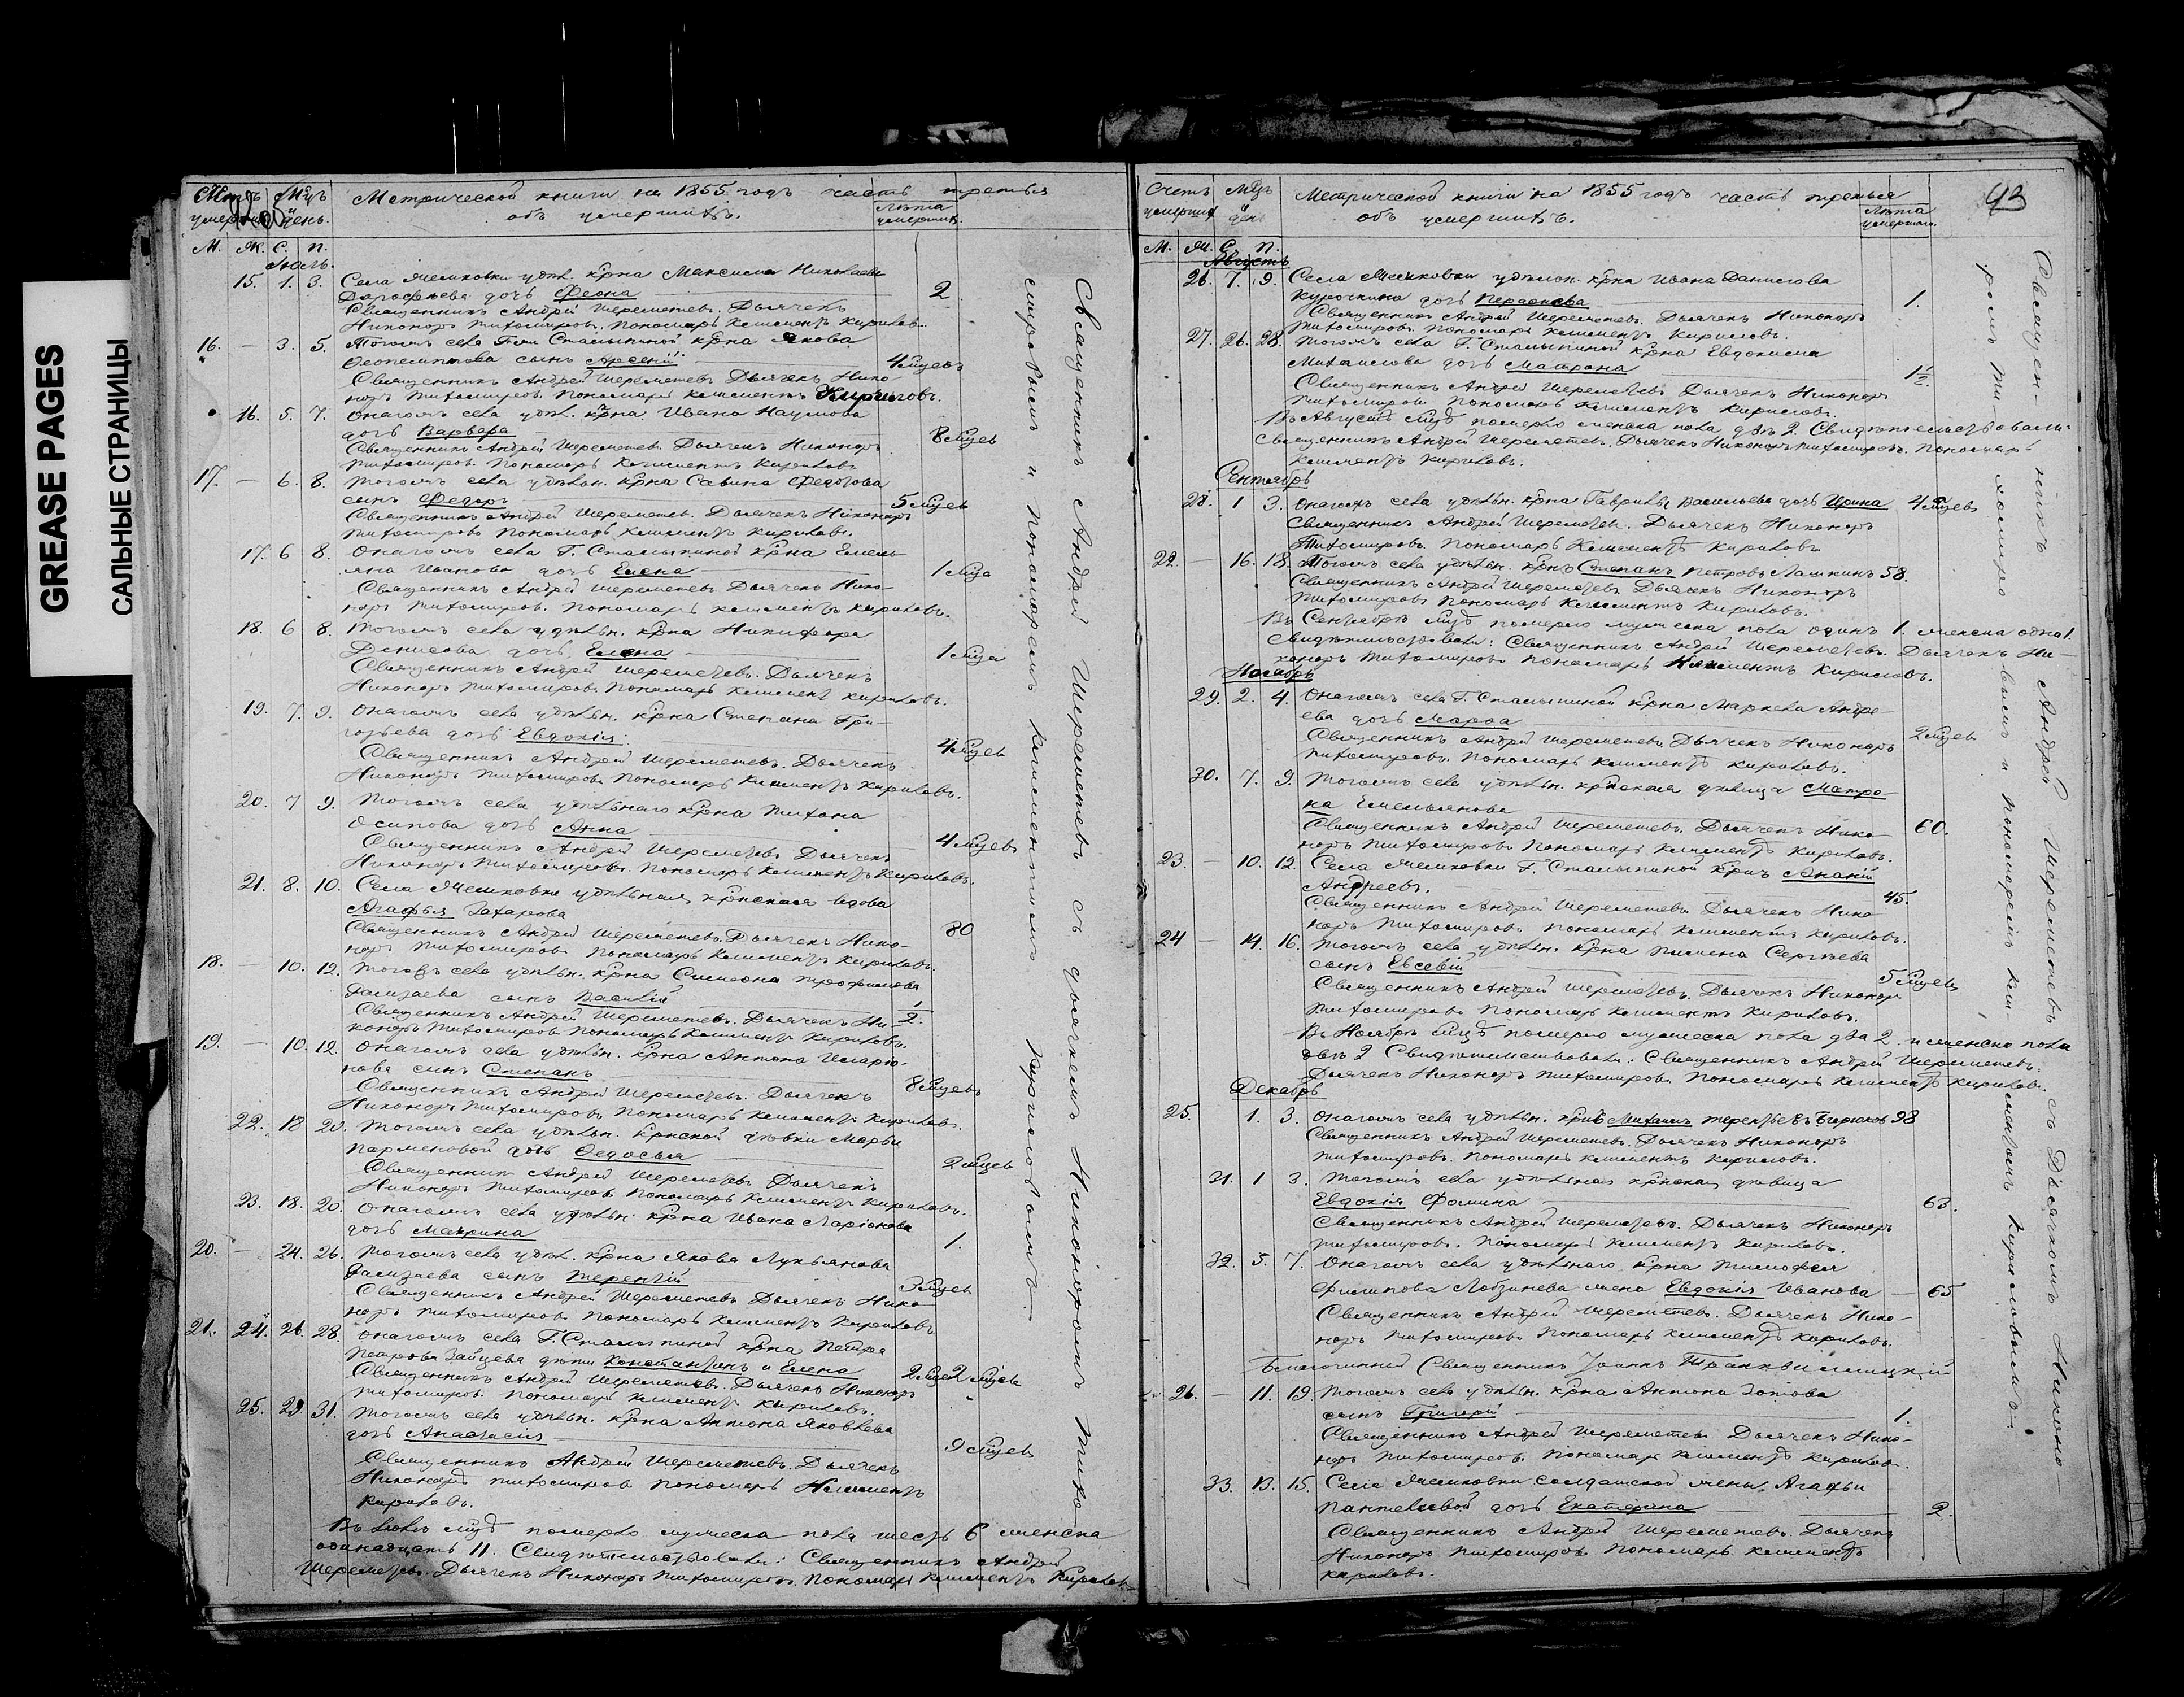 GREASE PAGES
САЛЬНЫЕ СТРАНИЦЫ
Счетъ Мѣцъ Метрической книги на 1855 годъ часть третья
умерших день. объ умершихъ. Лѣта умершихъ.
М. Ж. С. П.
Июль.
15. 1. 3. Села удѣл. крѣна Максима Николаева
дочь Феона 2
Священникъ Андрей Шереметевъ. Дьячекъ
Никоноръ Тихомировъ. Пономарь Климентъ Кириловъ.
16. — 3. 5. Тогожъ села Г-жи Сталыпиной крѣна Якова
Феопемптова сынъ Арсений 4 мѣцевъ
Священникъ Андрей Шереметевъ Дьячекъ Нико-
норъ Тихомировъ. Пономарь Климентъ Кириловъ.
16. 5. 7. Онагожъ села удѣл. крѣна Ивана Наумова
дочь Варвара 8 мѣцев
Священникъ Андрей Шереметевъ. Дьячекъ Никоноръ
Тихомировъ. Пономарь Климентъ Кириловъ
17. — 6. 8. Тогожъ села удѣльн. крѣна Савина Федотова
сынъ Федоръ 5 мѣцев
Священникъ Андрей Шереметев. Дьячекъ Никоноръ
Тихомировъ Пономарь Климентъ Кириловъ.
17. 6 8. Онагожъ села Г. Сталыпиной крѣна Емель-
яна Иванова дочь Елена 1 мѣца
Священникъ Андрей Шереметевъ Дьячекъ Нико-
норъ Тихомировъ. Пономарь Климентъ Кириловъ.
18. 6 8. Тогожъ села удѣльн. крѣна Никифора
Денисова дочь Елена 1 мѣца
Священникъ Андрей Шереметевъ. Дьячекъ
Никоноръ Тихомировъ. Пономарь Климентъ Кириловъ.
19. 7. 9. Онагожъ села удѣльн. крѣна Степана Гри-
горьева дочь Евдокія. 4 мѣцев
Священникъ Андрей Шереметевъ. Дьячекъ
Никоноръ Тихомировъ Пономарь Климентъ Кириловъ.
20. 7 9. Тогожъ села удѣльнаго крѣна Тихона
Осипова дочь Анна 4 мѣцевъ
Священникъ Андрей Шереметевъ Дьячекъ
Никоноръ Тихомировъ. Пономарь Климентъ Кириловъ.
21. 8. 10. Села удѣльная крѣнская вдова
Агафья Захарова 80
Священникъ Андрей Шереметевъ. Дьячекъ Нико-
норъ Тихомировъ Пономарь Климентъ Кириловъ.
18. — 10. 12. Тогожъ села удѣльн. крѣна Симеона Трофимова
сынъ Василій 1/2.
Священникъ Андрей Шереметевъ. Дьячекъ Ни-
коноръ Тихомировъ Пономарь Климентъ Кириловъ.
19. — 10. 12. Онагожъ села удѣльн. крѣна Антона Иларио-
нова сынъ Степанъ 8 мѣцевъ
Священникъ Андрей Шереметевъ. Дьячекъ
Никоноръ Тихомировъ. Пономарь Климентъ Кириловъ.
22. 18 20. Тогожъ села удѣльн. крѣнской дѣвки Марьи
Парменовой дочь Федосья 2 мѣцев
Священникъ Андрей Шереметевъ Дьячекъ
Никоноръ Тихомировъ. Пономарь Климентъ Кириловъ.
23. 18. 20. Онагожъ села удѣльн. крѣна Ивана Ларіонова
дочь 1.
20. — 24. 26. Тогожъ села удѣл. крѣна Якова Лукьянова
сынъ Терентій 3 мѣцев
Священникъ Андрей Шереметевъ Дьячекъ Нико-
норъ Тихомировъ Пономарь Климентъ Кириловъ
21. 24. 26. 28. Онагожъ села Г. Сталыпиной крѣна Петра
Петрова Зайцева дѣти Константинъ и Елена 2 мѣцев 2 мѣцев
Священникъ Андрей Шереметевъ. Дьячекъ Никоноръ
Тихомировъ. Пономарь Климентъ Кириловъ.
25. 29. 31. Тогожъ села удѣльн. крѣна Антона Яковлева
дочь Анастасія 9 мѣцев
Священникъ Андрей Шереметевъ. Дьячекъ
Никоноръ Тихомировъ Пономарь Климентъ
Кириловъ.
Въ Июлѣ мѣцѣ померло мужеска пола шесть 6 женска
одинадцать 11. Свидѣтельствовали: Священникъ Андрей
Шереметевъ. Дьячекъ Никоноръ Тихомировъ. Пономарь Климентъ Кириловъ
Священникъ Андрей Шереметевъ съ дьячкомъ Никоноромъ Тихо-
мировымъ и пономаремъ Климентомъ Кириловымъ.
Счетъ Мѣцъ Метрической книги на 1855 годъ часть третья 93
умерших день объ умершихъ. Лѣта умершаго.
М. Ж. С. П.
Августъ
26. 7. 9. Села удѣльн. крѣна Ивана Данилова
Курочкина дочь 1.
Священникъ Андрей Шереметевъ. Дьячекъ Никоноръ
Тихомировъ. Пономарь Климентъ Кириловъ.
27. 26. 28. Тогожъ села Г. Сталыпиной крѣна Евдокима
Михайлова дочь Матрона 1 1/2.
Священникъ Андрей Шереметевъ Дьячекъ Никоноръ
Тихомировъ Пономарь Климентъ Кириловъ.
Въ Августѣ мѣцѣ померло женска пола двѣ 2. Свидѣтельствовали:
Священникъ Андрей Шереметевъ. Дьячекъ Никоноръ Тихомировъ. Пономарь
Климентъ Кириловъ.
Сентябрь
28. 1 3. Онагожъ села удѣльн. крѣна Гаврилы Васильева дочь Ирина 4 мѣцевъ
Священникъ Андрей Шереметевъ. Дьячекъ Никоноръ
Тихомировъ. Пономарь Климентъ Кириловъ
22. — 16. 18. Тогожъ села удѣльн. крѣнъ Степанъ Петровъ Лашкинъ 58.
Священникъ Андрей Шереметевъ Дьячекъ Никоноръ
Тихомировъ Пономарь Климентъ Кириловъ.
Въ Сентябрѣ мѣцѣ померло мужеска пола одинъ 1. женска одно 1.
Свидѣтельствовали: Священникъ Андрей Шереметевъ. Дьячекъ Ни-
коноръ Тихомировъ Пономарь Климентъ Кириловъ.
Ноябрь
29. 2. 4. Онагожъ села Г. Сталыпиной крѣна Маркела Андре-
ева дочь Марфа 2 мѣцев
Священникъ Андрей Шереметевъ. Дьячекъ Никоноръ
Тихомировъ. Пономарь Климентъ Кириловъ.
30. 7. 9. Тогожъ села удѣльн. крѣнская дѣвица Матро-
на Емельянова 60.
Священникъ Андрей Шереметевъ. Дьячекъ Нико-
норъ Тихомировъ Пономарь Климентъ Кириловъ.
23. — 10. 12. Села Г. Сталыпиной крѣнъ Ананій
Андреевъ. 45.
Священникъ Андрей Шереметевъ Дьячекъ Нико-
норъ Тихомировъ. Пономарь Климентъ Кириловъ.
24 — 14. 16. Тогожъ села удѣльн. крѣна Пимена Сергѣева
сынъ Евсевій 5 мѣцев
Священникъ Андрей Шереметевъ. Дьячекъ Никоноръ
Тихомировъ Пономарь Климентъ Кириловъ.
Въ Ноябрѣ мѣцѣ померло мужеска пола два 2. и женска пола
двѣ 2 Свидѣтельствовали: Священникъ Андрей Шереметевъ.
Дьячекъ Никоноръ Тихомировъ. Пономарь Климентъ Кириловъ.
Декабрь
25. 1. 3. Онагожъ села удѣльн. крѣнъ Михаилъ Терентьевъ
Священникъ Андрей Шереметевъ. Дьячекъ Никоноръ
Тихомировъ. Пономарь Климентъ Кириловъ.
31. 1 3. Тогожъ села удѣльная крѣнская дѣвица
Евдокія Фомина 63.
Священникъ Андрей Шереметевъ. Дьячекъ Никоноръ
Тихомировъ. Пономарь Климентъ Кириловъ.
32. 5. 7. Онагожъ села удѣльнаго крѣна Тимофея
Филипова жена Евдокія Иванова — 65
Священникъ Андрей Шереметевъ. Дьячекъ Нико-
норъ Тихомировъ Пономарь Климентъ Кириловъ.
Благочинный Священникъ Іоаннъ
26. — 11. 13. Тогожъ села удѣльн. крѣна Антона Зотова
сынъ Григорій 1.
Священникъ Андрей Шереметевъ Дьячекъ Нико-
норъ Тихомировъ. Пономарь Климентъ Кириловъ.
33. 13. 15. Села солдатской жены Агафьи
Пантелеевой дочь Екатерина 2.
Священникъ Андрей Шереметевъ. Дьячекъ
Никоноръ Тихомировъ. Пономарь Климентъ
Кириловъ.
Священникъ Андрей Шереметевъ съ Дьячкомъ Никоно-
ромъ Тихомировымъ и пономаремъ Климентомъ Кириловымъ.